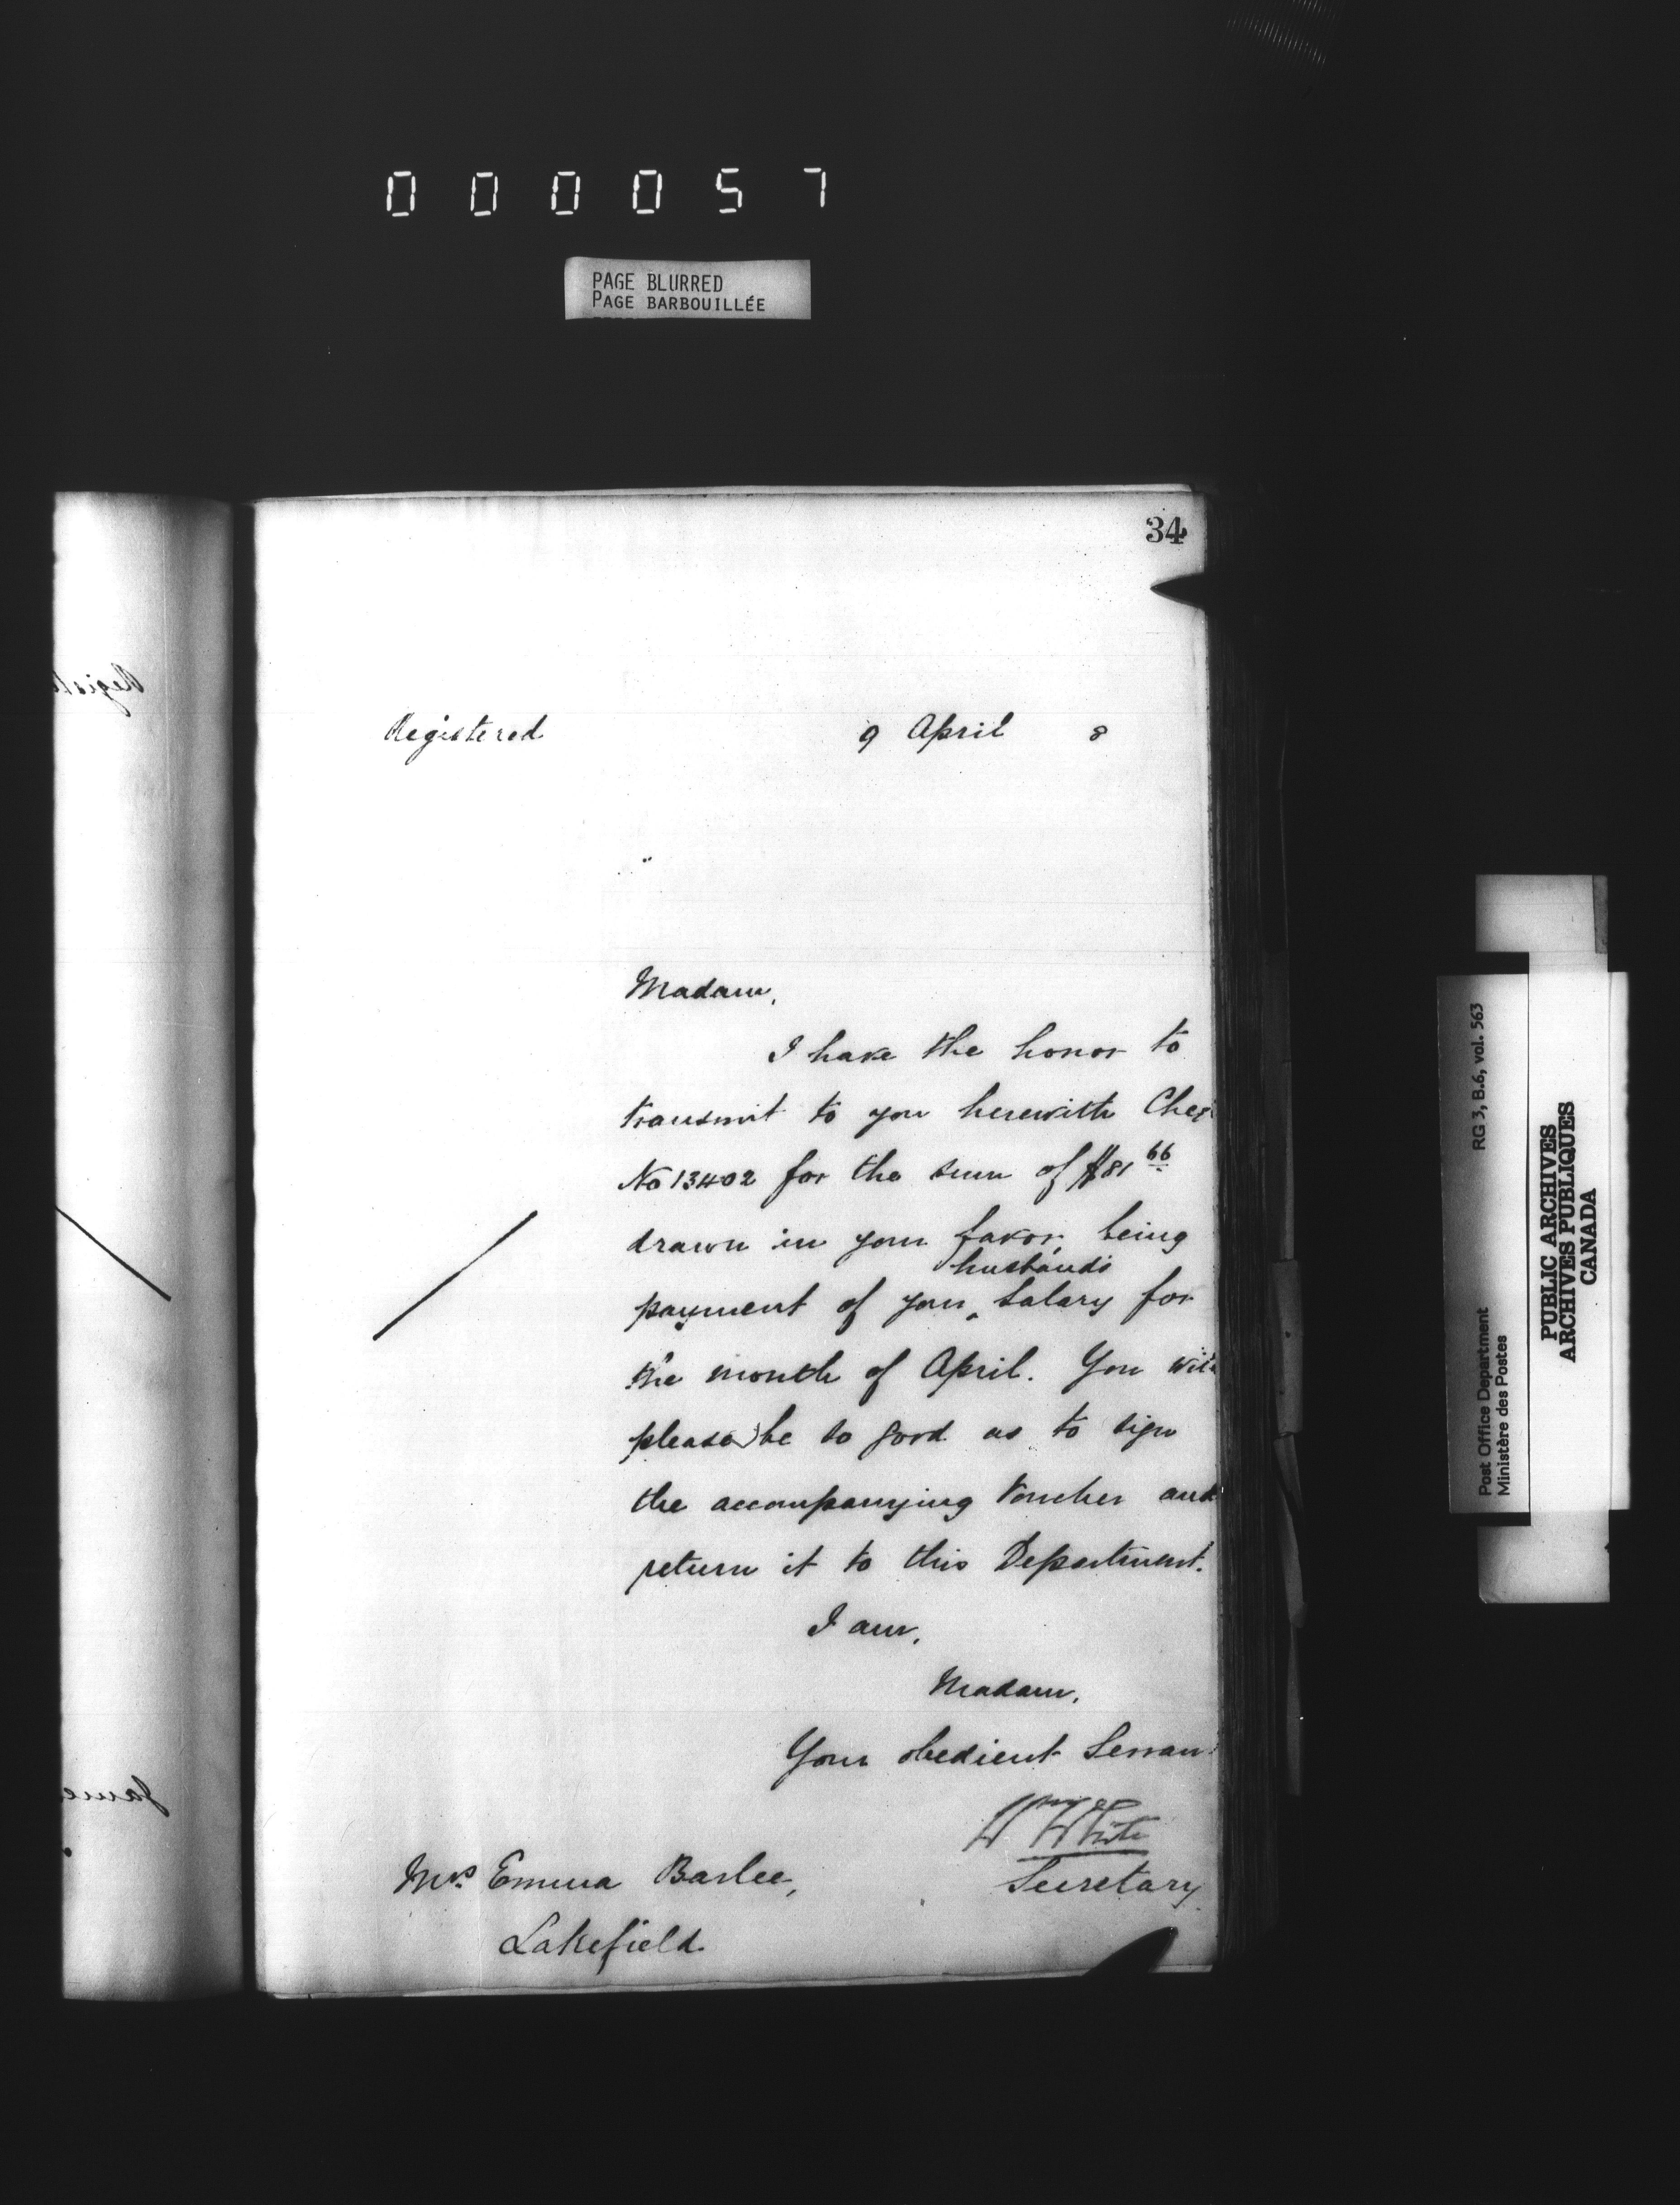 000057
PAGE BLURRED
PAGE BARBOUILLÉE
34
Registered 9 April 8
Madam,
I have the honor to
transmit to you herewith Cheq
No 13402 for the sum of $81 66
drawn in your favor, being
husband's
payment of your ‸ Salary for
the month of April. You will
please be so good as to sign
the accompanying Voucher and
return it to this Department.
I am,
Madam,
Your obedient Servan
Wm White
Secretary
Mrs. Emma Barlee,
Lakefield
RG 3, B.6, vol. 563
Post Office Department
Ministère des Postes
PUBLIC ARCHIVES
ARCHIVES PUBLIQUES
CANADA